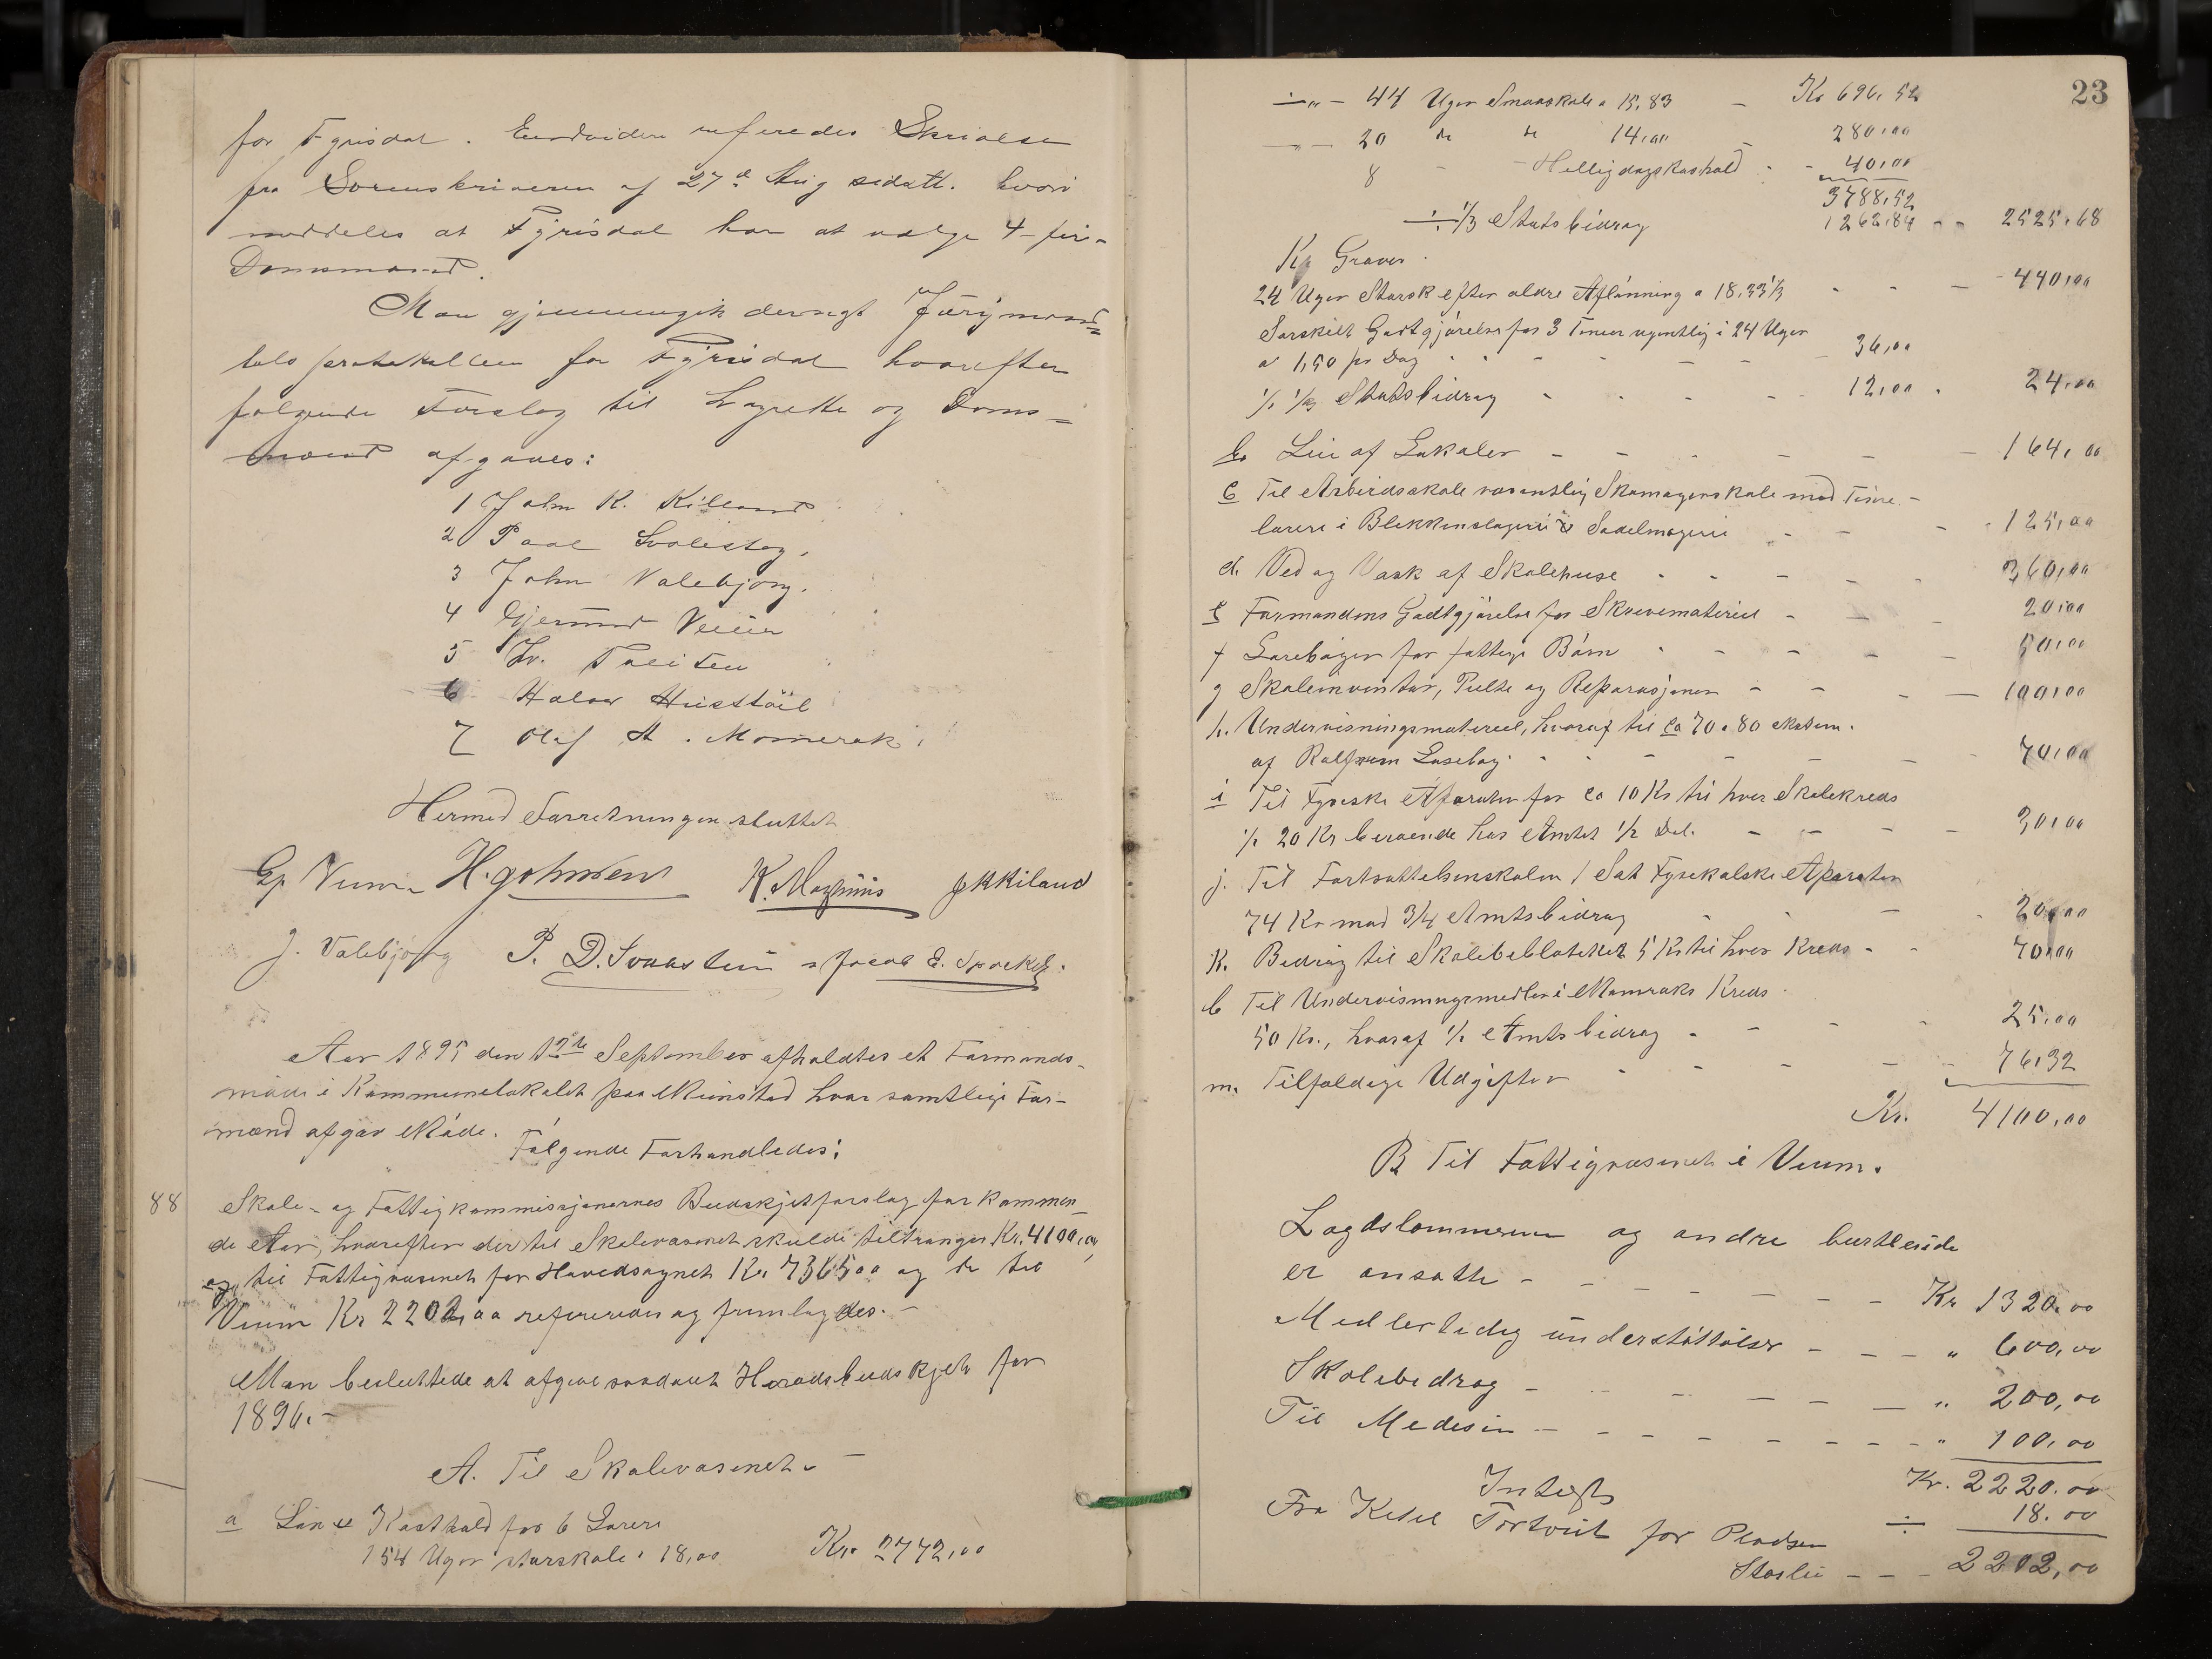 for Fyrisdal. Endvidere refereredes Skrivelse
fra Sorenskriveren af 27de Aug sidstl. hvori
meddeles at Fyrisdal har at vælge 4 fire
Domsmænd.
Man gjennemgik dernæst Jurymands=
tals protokollen for Fyrisdal hvorefter
følgende Forslag til Lagrette og Doms=
mænd afgaves:
1 John K. Kiland
2 Paal Svalestog.
3 John Valebjørg.
4 Gjermund Veum
5
6 Halvor Husstöil
7 Olaf A. Momrak
Hermed Forretningen sluttet
Gj Veum H. Johnsen K. Magnus JKKiland
J. Valebjørg P. D. Svaastun
Aar 1895 den 12te September afholdtes et Formands-
møde i Kommunelokalet paa Moinstad hvor samtlige For-
mænd afgav Møde.
Følgende Forhandledes:
88 Skole- og Fattigkommissjonernes Budskjetforslag for kommen-
de Aar, hvorefter der til Skolevæsenet skulde tiltrænges Kr. 4100,00
og til Fattigvæsenet for Hovedsognet Kr. 7365,00 og do til
Veum Kr 2202,00 refereredes og fremlagdes. -
Man besluttede at afgive saadant Heradsbudskjet for
1896. -
A. Til Skolevæsenet. -
a Løn & Kosthold for 6 Lærere
154 Uger storskole a 18,00 Kr. 2772,00
23
-"- 44 Uger Smaaskole a 15,83 - Kr 696,52
-"- 20 do do 14,00 - 280,00
8 - - Helligdagskosthold - - 40,00
3788,52
÷ 1/3 Statsbidrag 1262,84 - - 2525,68
Kr Graver
24 Uger Storsk efter ældre Aflønning a 18,33 1/3 - - - 440,00
Særskilt Godtgjørelse for 3 Timer ugentlig i 24 Uger
a 1,50 pr Dag - - - - 36,00
÷ 1/3 Statsbidrag - - - - 12,00 - 24,00
b. Leie af Lokaler - - - - - 164,00
c Til Arbeidsskole væsentlig Skomagerskole med Time-
lærere i Blikkenslageri & Sadelmageri - - - 125,00
d. Ved og Vask af Skolehuse - - - - - 360,00
e Formandens Godtgjørelse for Skrivemateriel - - - 20,00
f Lærebøger for fattige Børn - - - - - 50,00
g Skoleinventar, Pulte og Reparasjoner - - - - 100,00
h. Undervisningsmateriel, hvoraf til ca 70 a 80 eksem.
af Rolfsen Læsebog - - - - - 70,00
i Til Fysiske Aparater for ca 10 Kr til hver Skolekreds
÷ 20 Kr beroende hos Amtet 1/2 Del. - - - - 30,00
j. Til Fortsættelsesskolen 1 Sæt Fysikalske Aparater
74 Kr med 3/4 Amtsbidrag - - - - 20,00
k. Bidrag til Skolebiblioteket 5 Kr til hver Kreds - - 70,00
l Til Undervisningsmidler i Momraks Kreds
50 Kr., hvoraf 1/2 Amtsbidrag - - - - 25,00
m. Tilfældige Udgifter - - - - - 76,32
Kr. 4100,00
B Til Fattigvæsenet i Veum.
Lægdslemmerne og andre bortleiede
er ansatte - - - - - - - Kr 1320,00
Medlertidig understöttelser - - - " 600,00
Skolebidrag - - - - - - " 200,00
Til Medesin - - - - - - - " 100,00
Kr. 2220,00
Intægt
Fra Ketil Tortveit for Pladsen ÷ 18.00
Støslii - - - 2202,00